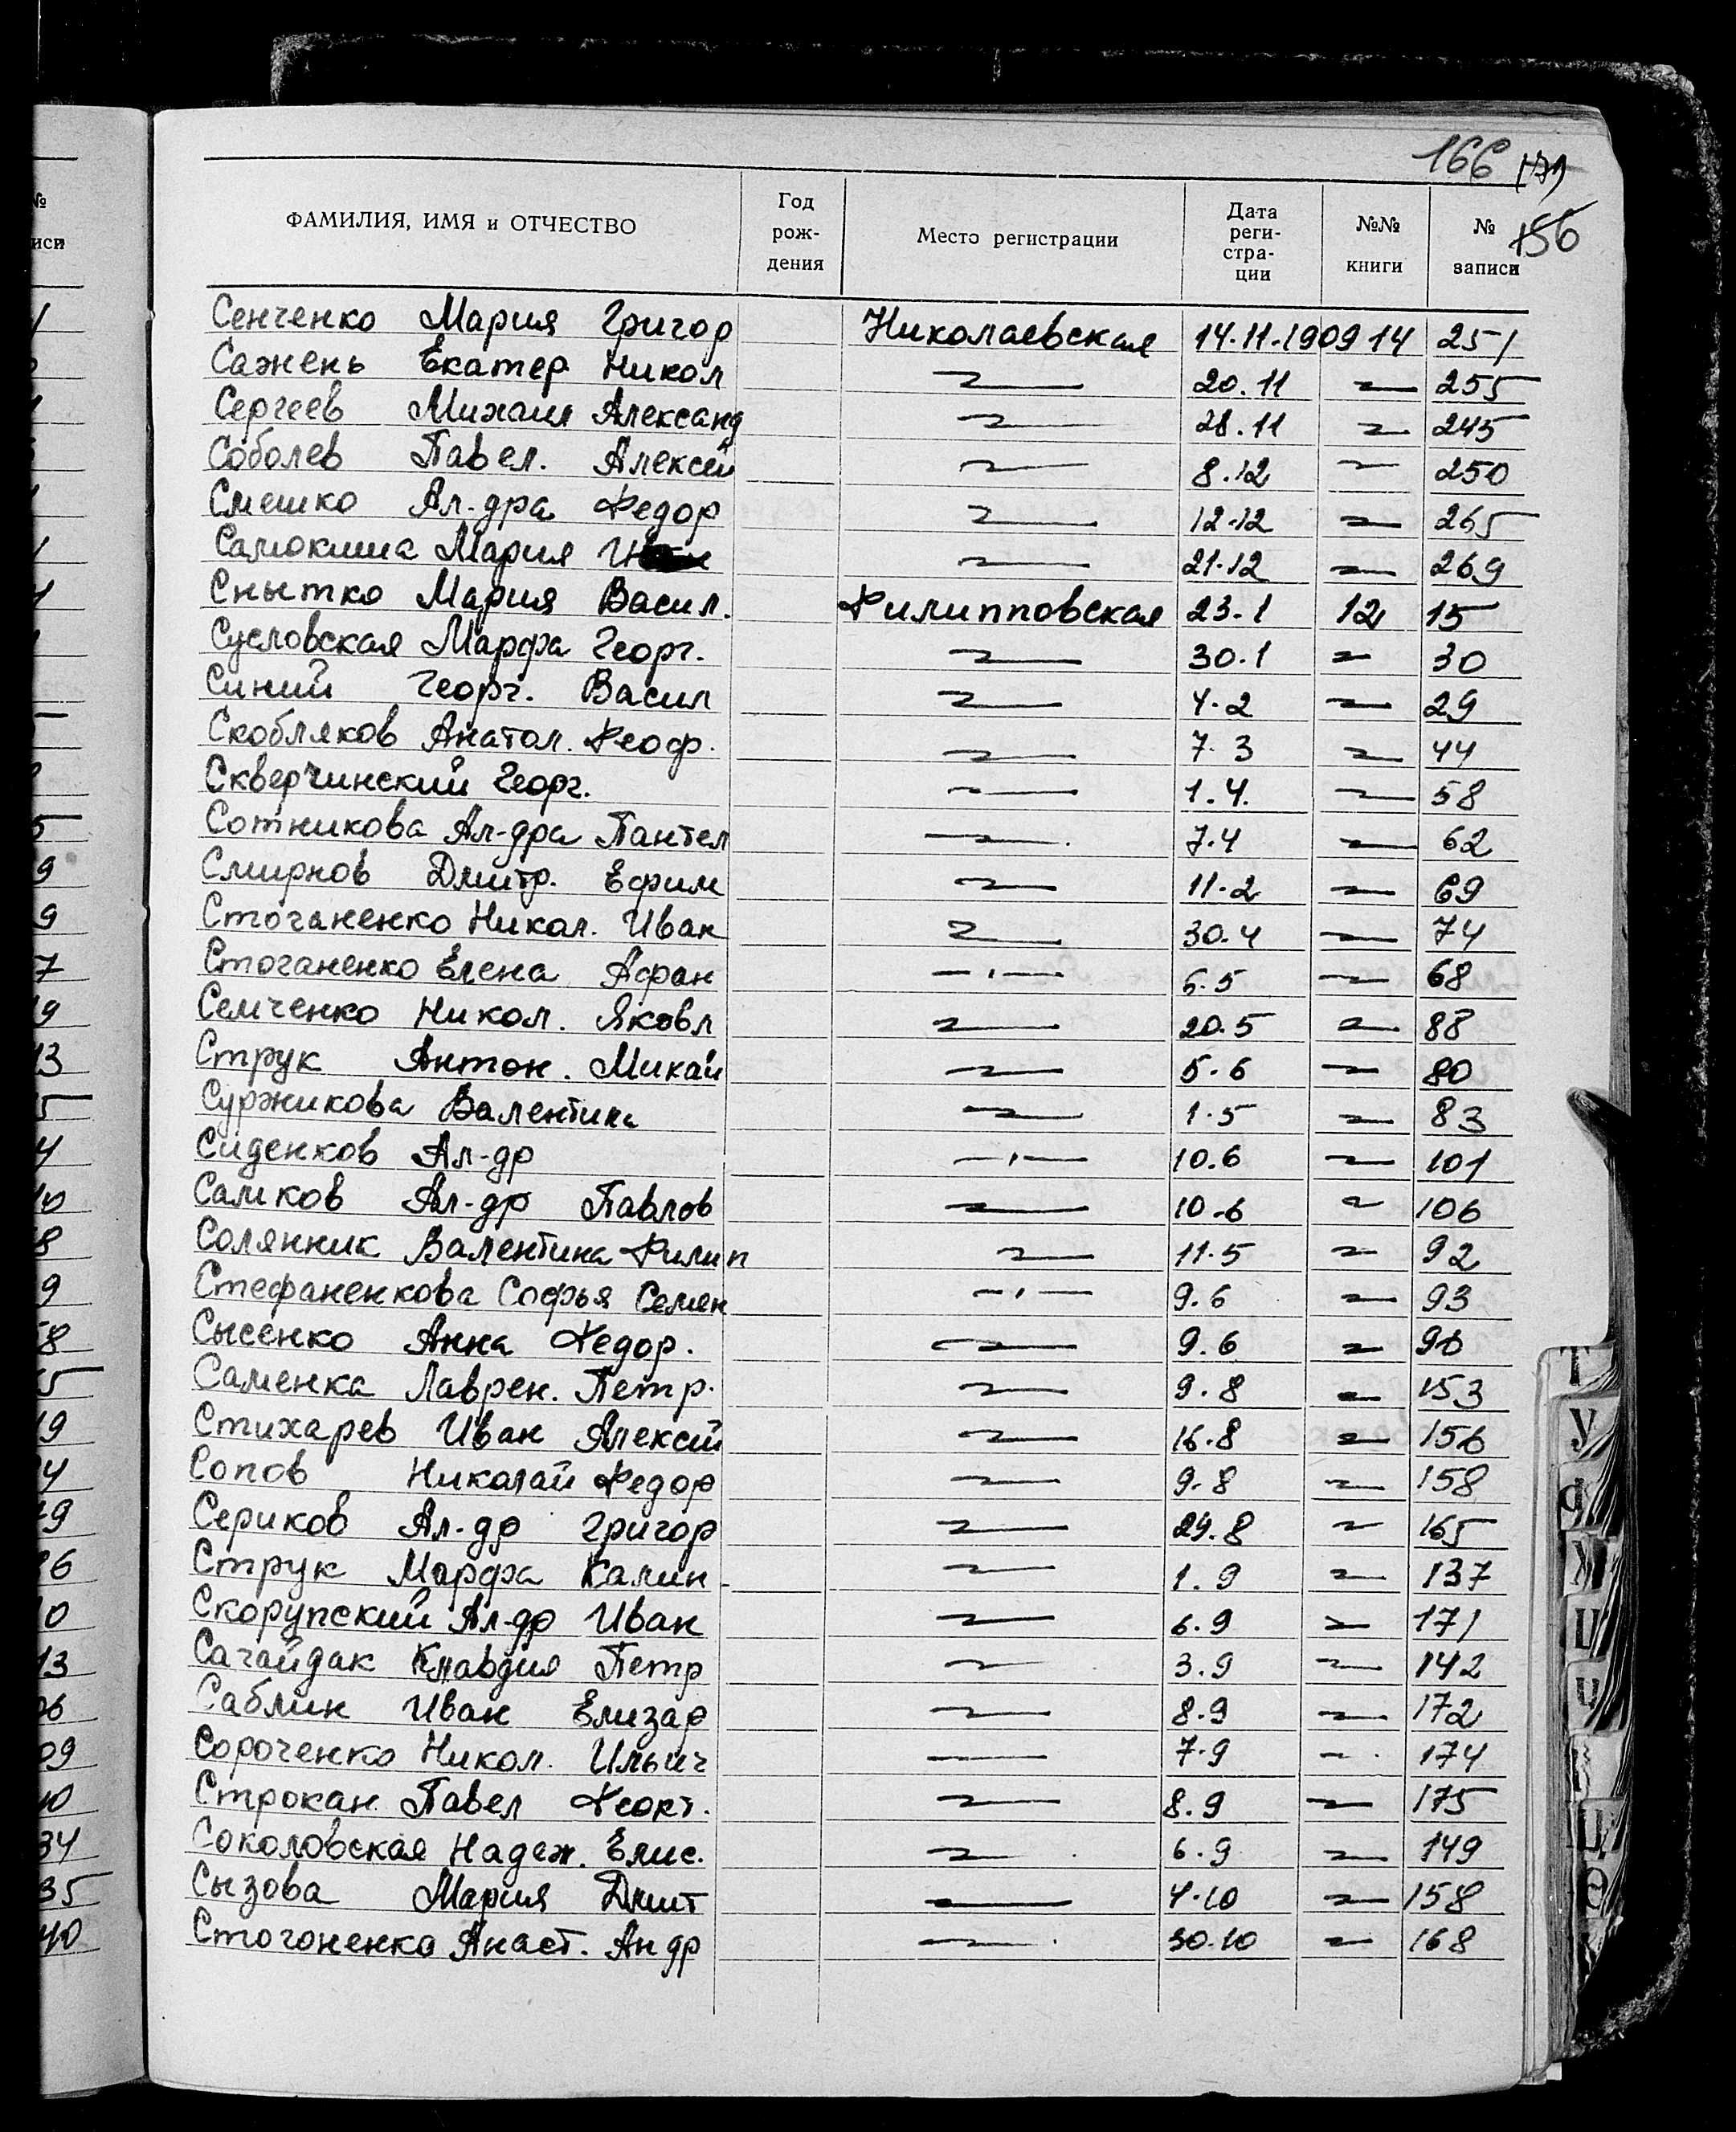 166
156
ФАМИЛИЯ, ИМЯ и ОТЧЕСТВО Год рож-дения Место регистрации Дата реги-стра-ции №№ книги № записи
Сенченко Мария Григор Николаевская 14.11.1909 14 251
Сажень Екатер Никол 20.11 255
Сергеев Михаил Александ 28.11 245
Соболев Павел. Алексей 8.12 250
Смешко Ал-дра Федор 12.12 265
Самокиша Мария 21.12 269
Снытко Мария Васил. Филипповская 23.1 12 15
Сусловская Марфа Георг. 30.1 30
Синий Георг. Васил 4.2 29
Скобляков Анатол. Феоф. 7.3 44
Скверчинский Георг. 1.4. 58
Сотникова Ал-дра Пантел 7.4 62
Смирнов Дмитр. Ефим 11.2 69
Стоганенко Никол. Иван 30.4 74
Стоганенко Елена Афан 6.5 68
Семченко Никол. Яковл 20.5 88
Струк Антон. Михай 5.6 80
Суржикова Валентина 1.5 83
Сиденков Ал-др 10.6 101
Самков Ал-др Павлов 10.6 106
Солянник Валентина Филип 11.5 92
Стефаненкова Софья Семен 9.6 93
Сысенко Анна Федор. 9.6 90
Саменка Лаврен. Петр. 9.8 153
Стихарев Иван Алексей 16.8 156
Сопов Николай Федор 9.8 158
Сериков Ал-др Григор 29.8 165
Струк Марфа Калин 1.9 137
Скорупский Ал-др Иван 6.9 171
Сагайдак Клавдия Петр 3.9 142
Саблин Иван Елизар 8.9 172
Сороченко Никол. Ильич 7.9 174
Строкан Павел Феокт. 8.9 175
Соколовская Надеж. Елис. 6.9 149
Сызова Мария Дмит 4.10 158
Стогоненко Анаст. Андр 30.10 168